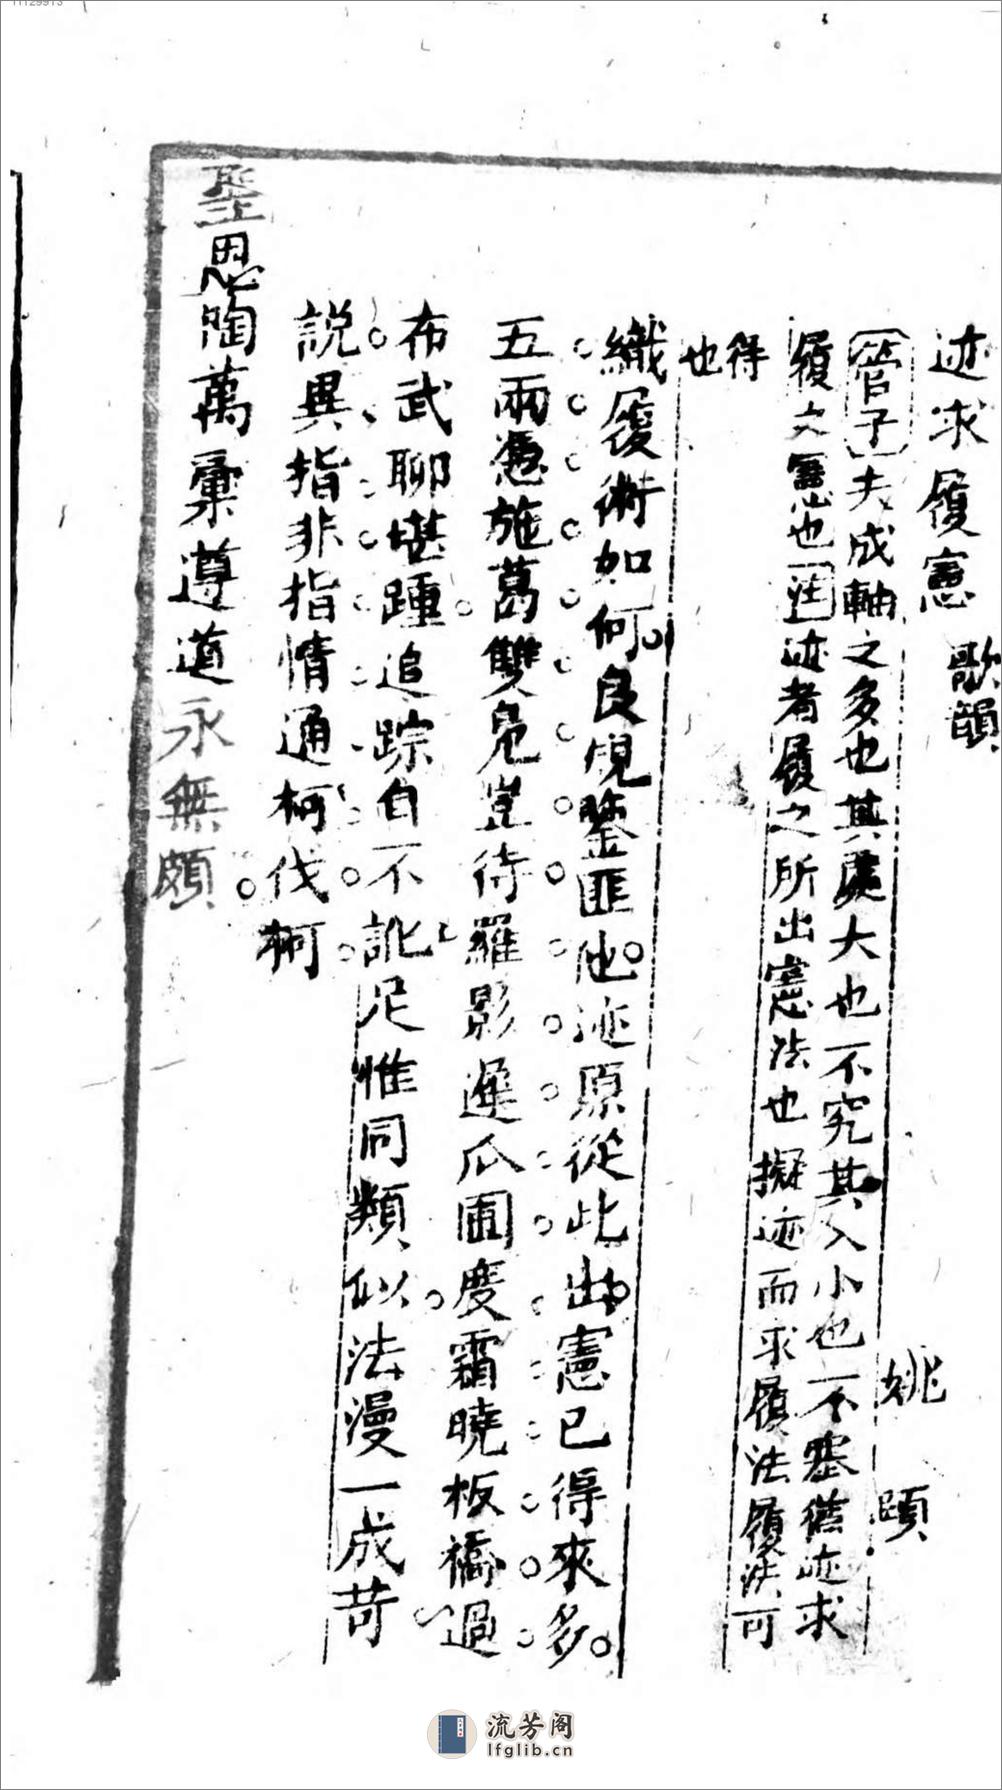 迹求履憲 歌韻
姚 頤
〔管子〕夫成軸之多也其處大也不究其入小也不塞猶迹求
履之憲也〔注〕迹者履之所出憲法也擬迹而求履法履法可
得
也
織履術如何良規鑒匪他迹原從此出憲已得來多
五兩憑施葛雙鳧豈待羅影遲瓜圃度霜曉板橋過
布武聊堪踵追踪自不訛足惟同類似法漫一成苛
說異指非指情通柯伐柯
聖恩陶萬彙遵道永無頗
流芳阁
lfglib.cn